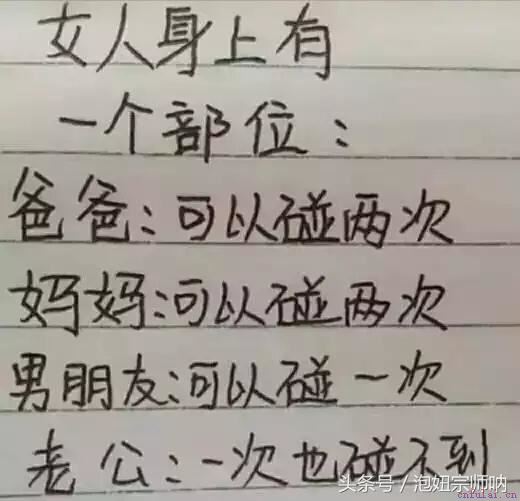 女人身上有
一个部位：
爸爸：可以碰两次
妈妈：可以碰两次
男朋友：可以碰一次
老公：一次也碰不到
头条号/泡妞宗师呐
cnfulai.cn